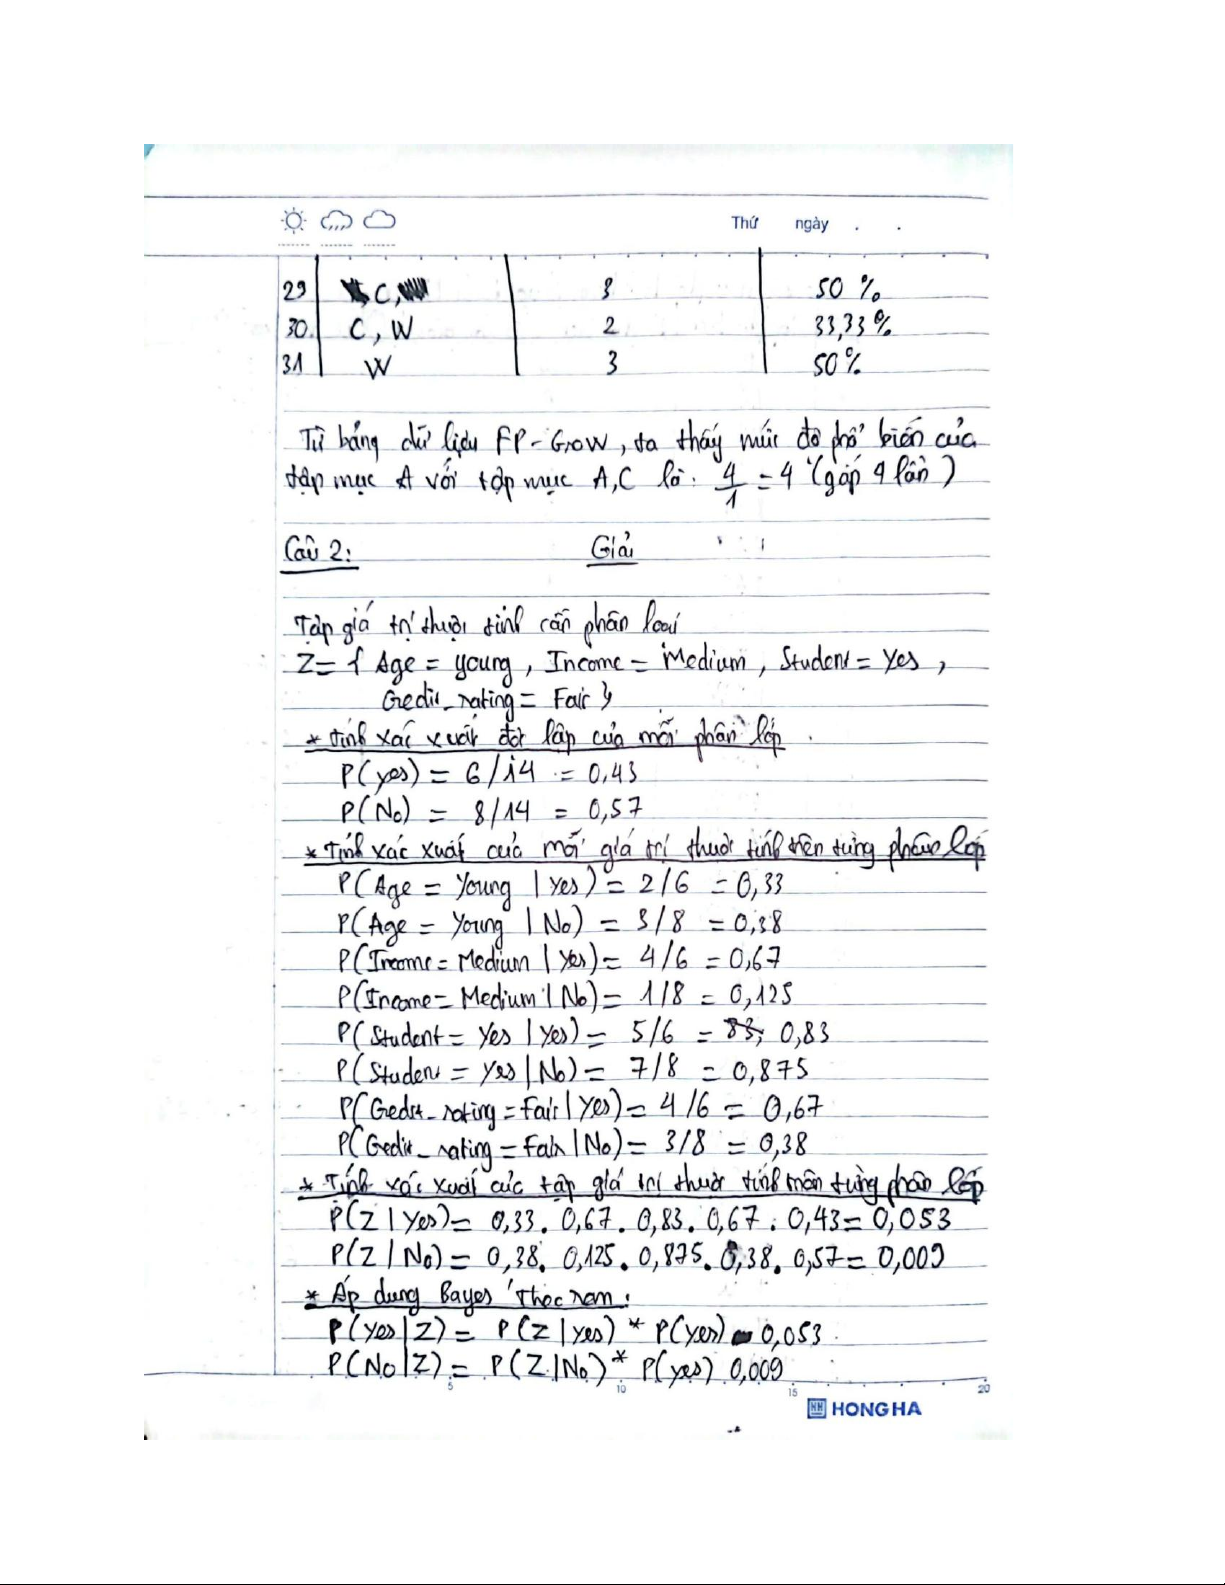 Thứ ngày . .
29 C, 3 50 %
30. C, W 2 33,33%
31 W 3 50%
Từ bảng dữ liệu FP-Grow, ta thấy mức độ phổ biến của
tập mục A với tập mục A,C là: 4/1 = 4 (gấp 4 lần)
Câu 2: Giải
Tập giá trị thuộc tính cần phân loại
Z = { Age = young, Income = Medium, Student = Yes,
Credit_rating = Fair }
* Tính xác xuất độc lập của mỗi phân lớp
P(yes) = 6/14 = 0,43
P(No) = 8/14 = 0,57
* Tính xác xuất của mỗi giá trị thuộc tính trên từng phân lớp
P(Age = Young | Yes) = 2/6 = 0,33
P(Age = Young | No) = 3/8 = 0,38
P(Income = Medium | Yes) = 4/6 = 0,67
P(Income = Medium | No) = 1/8 = 0,125
P(Student = Yes | Yes) = 5/6 = 0,83
P(Student = Yes | No) = 7/8 = 0,875
P(Credit_rating = Fair | Yes) = 4/6 = 0,67
P(Credit_rating = Fair | No) = 3/8 = 0,38
* Tính xác xuất của tập giá trị thuộc tính trên từng phân lớp
P(Z | Yes) = 0,33. 0,67. 0,83. 0,67. 0,43 = 0,053
P(Z / No) = 0,38. 0,125. 0,875. 0,38. 0,57 = 0,009
* Áp dụng Bayes Theorem:
P(yes | Z) = P(Z | yes) * P(yes) = 0,053
P(No | Z) = P(Z | No) * P(yes) 0,009
5 10 15 20
HH HONG HA